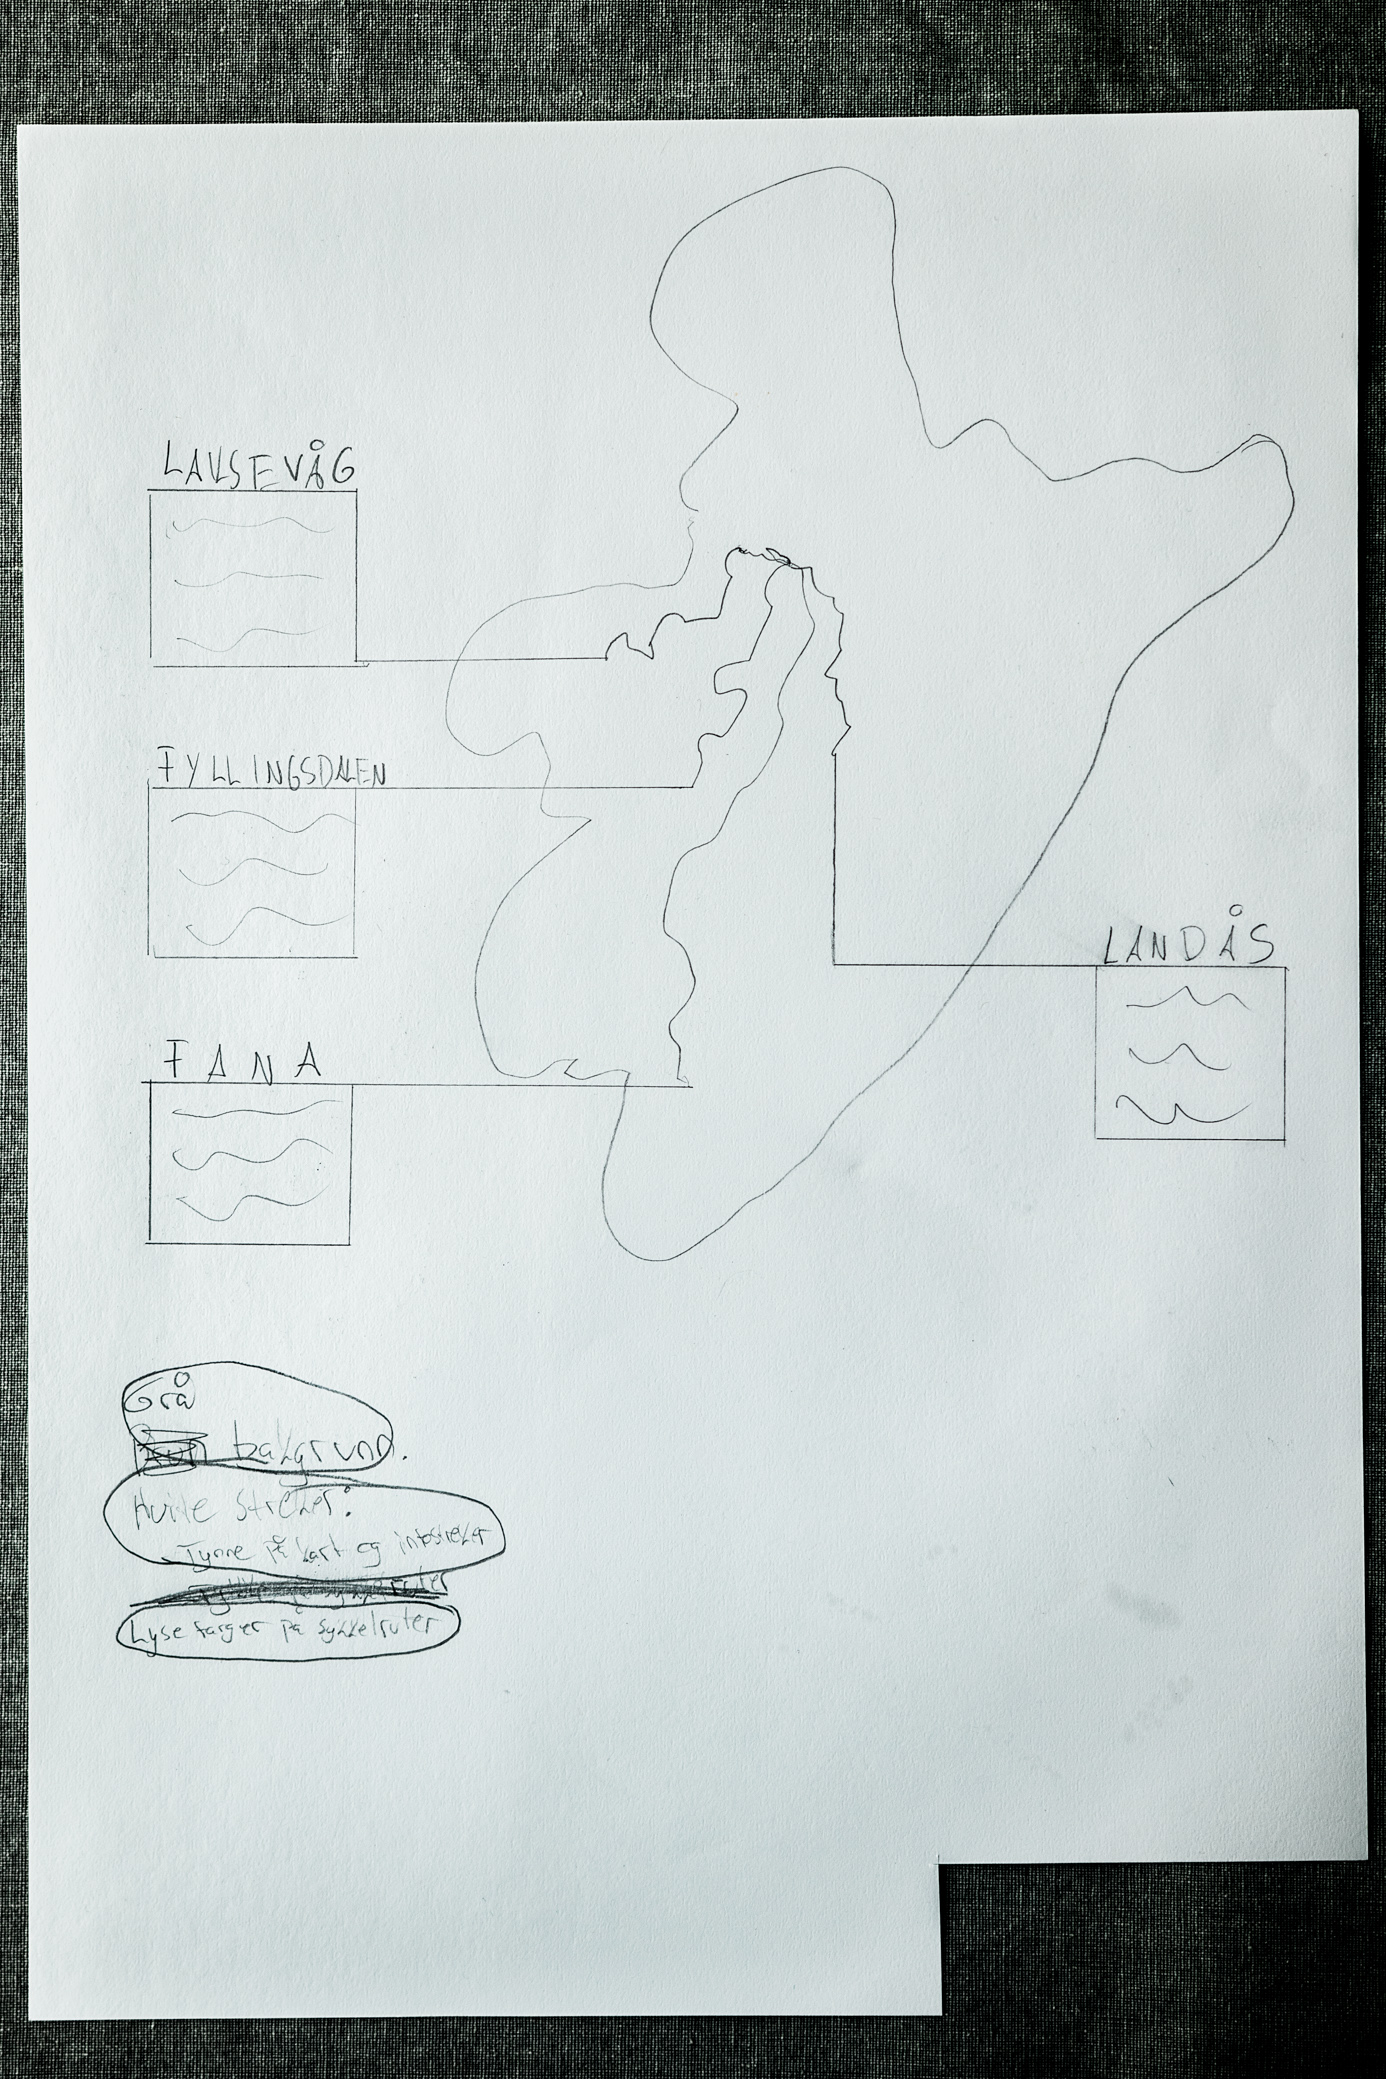 LAKSEVÅG
FYLLINGSDALEN
FANA
LANDÅS
Grå
bakgrunn.
Hvite streker:
Tynne på kart og infostreker
Lyse farger på sykkelruter